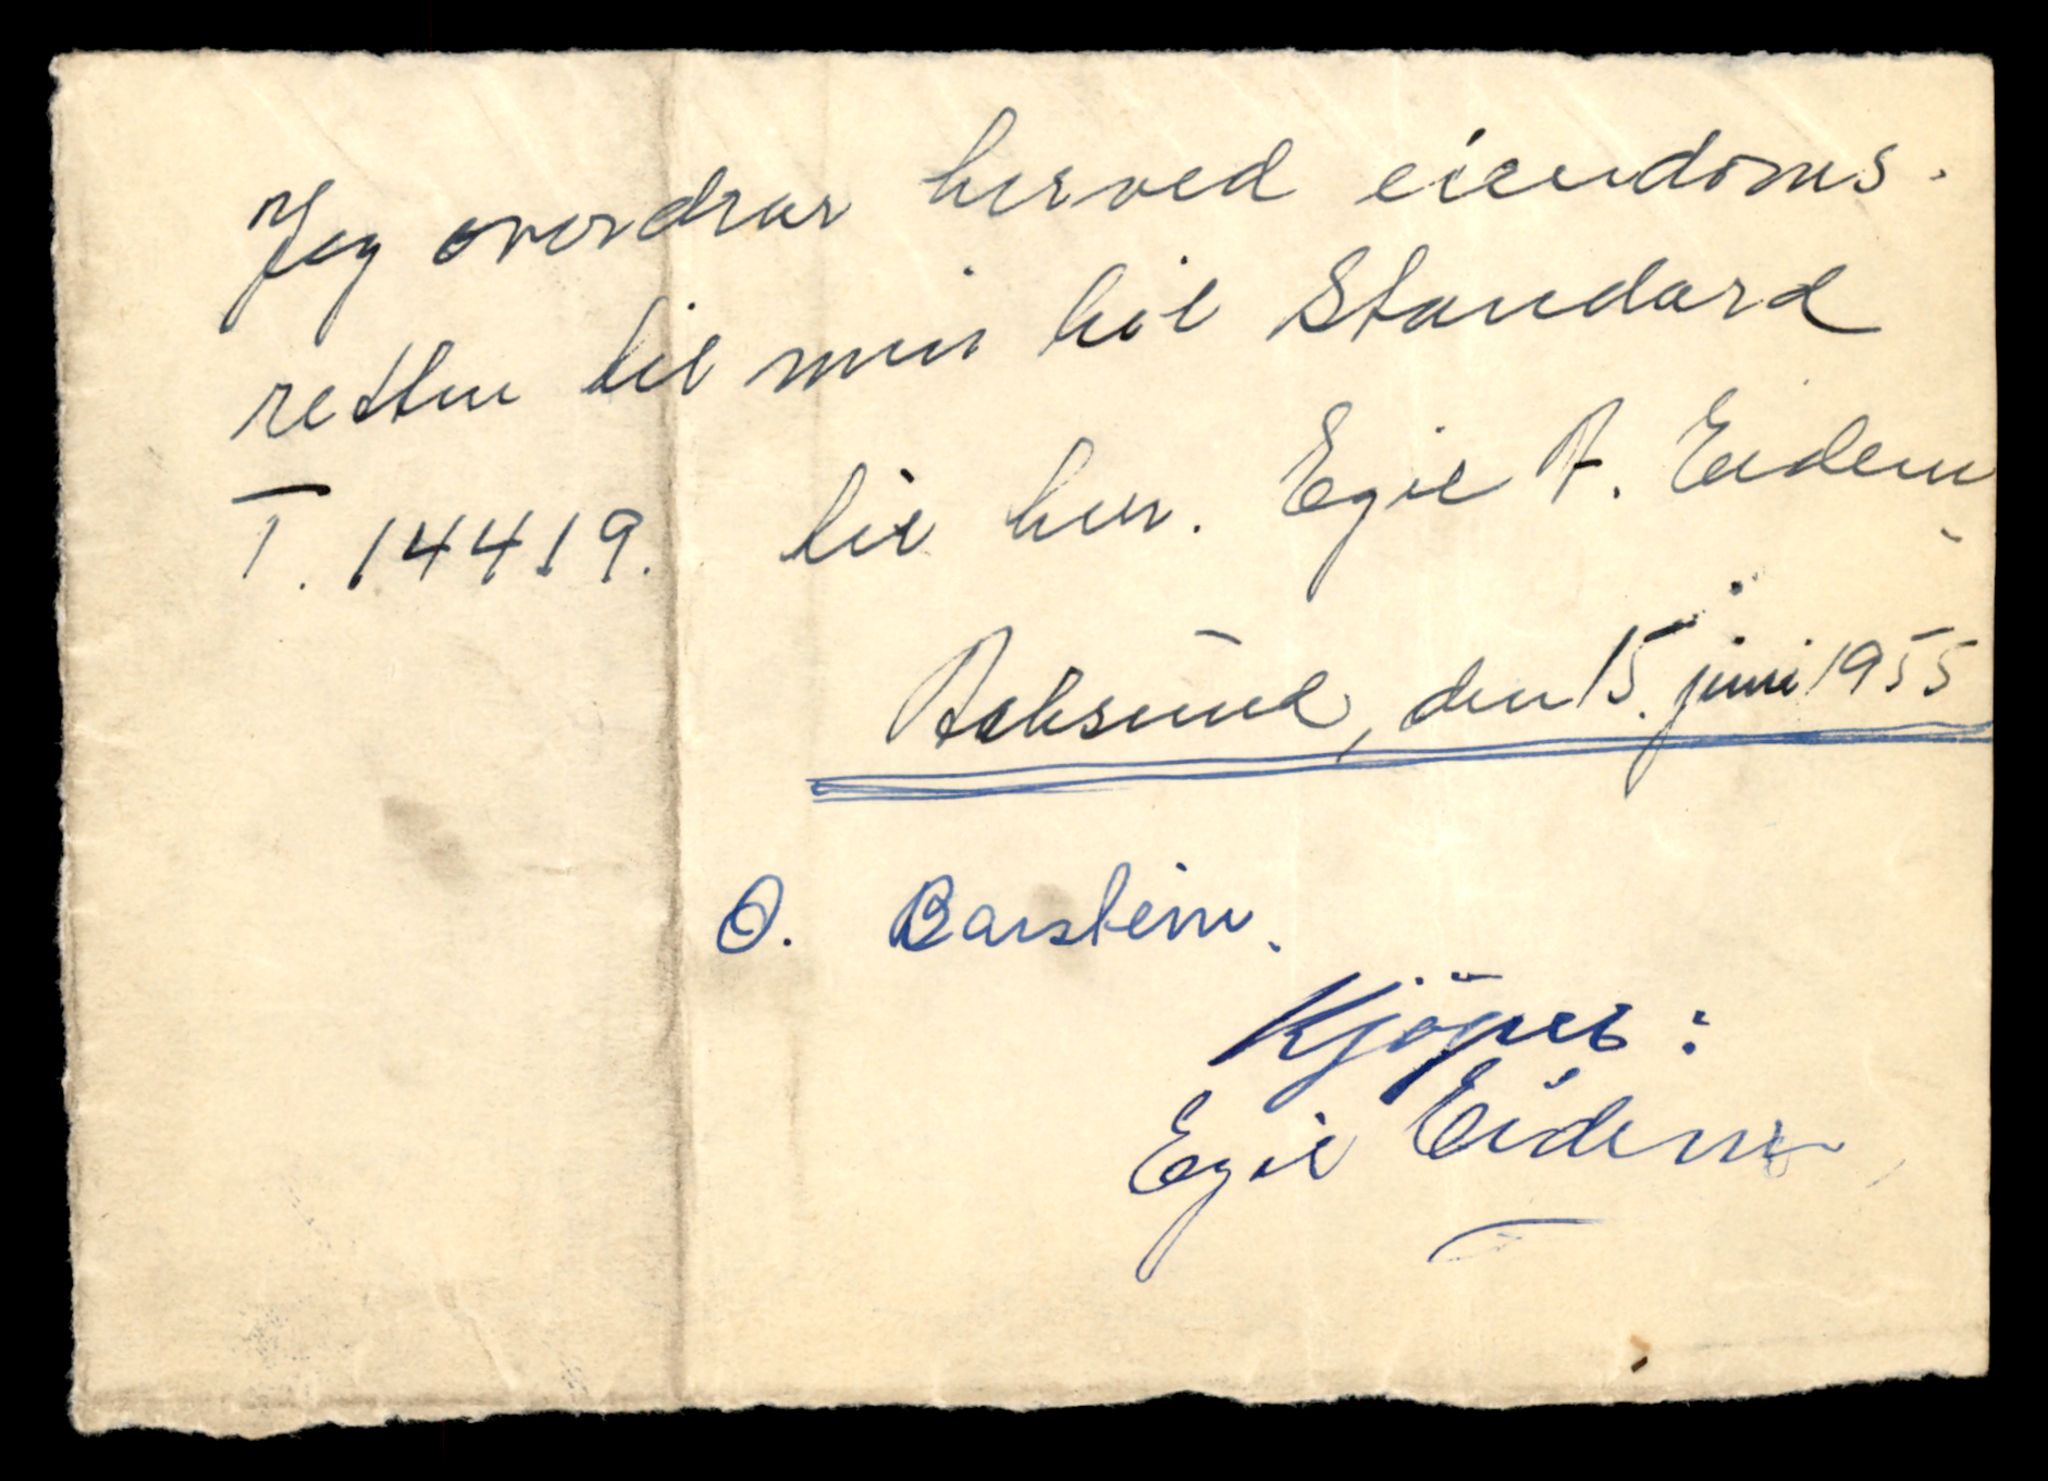 Jeg overdrar herved eiendoms-
retten til min bil Standard
T. 14419. til herr. Egil A. Eidem
den 15. juni 1955
O. Barstein.
Kjöper:
Egil Eidem